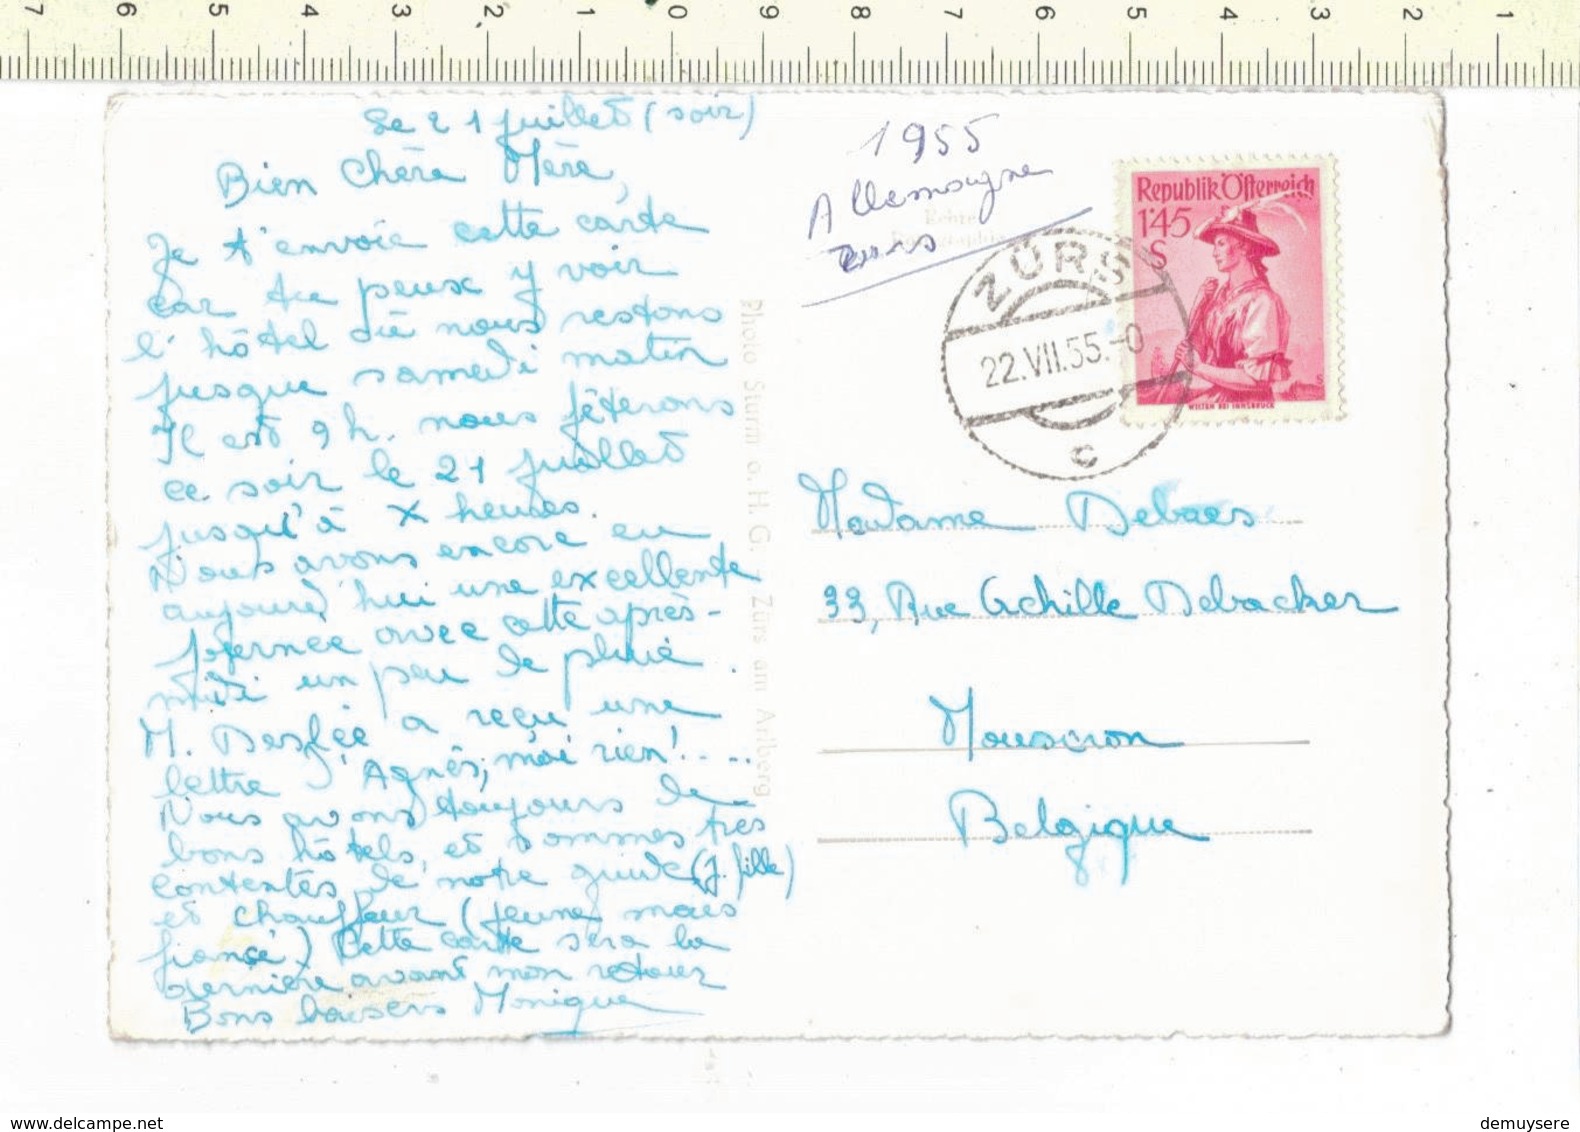 7 6 5 4 3 2 1 0 9 8 7 6 5 4 3 2 1
Le 21 juillet (soir)
Bien Chère Mère,
Je t'envoie cette carte
car tu peux y voir
l'hôtel où nous restons
jusque samedi matin
Il est 9 h. nous fêterons
ce soir le 21 juillet
jusqu'à X heures.
Nous avons encore eu
aujourd'hui une excellente
journée avec cette après-
midi un peu de pluie.
M. Desfée a reçu une
lettre d'Agnès, moi rien!....
Nous avons toujours de
bons hôtels, et sommes très
contentes de notre guide (J. fille)
et chauffeur (jeune mais
fiancé) Cette carte sera la
dernière avant mon retour
Bons baisers Monique
Photo Sturm o. H. G. - Zürs am Arlberg
1955
Allemagne
Zurs
Echte
ZÜRS
22.VII.55.-0
c
Republik Österreich
1'45
S
WILTEN BEI INNSBRUCK
Madame Debaes
33, Rue Achille Debacker
Mouscron
Belgique
delcampe.net
demuysere